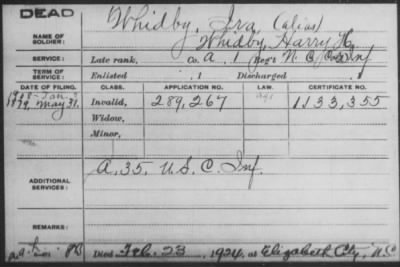 DEAD
Whidby, Ira (alias)
NAME OF SOLDIER: Whidby, Harry H.
SERVICE: Late rank, Co. A, 1 Reg't N.C. Col. Inf
TERM OF SERVICE: Enlisted , 1 Discharged , 1
DATE OF FILING. CLASS. APPLICATION NO. LAW. CERTIFICATE NO.
1879, May 31. Invalid, 289,267 1133,355
Widow,
Minor,
ADDITIONAL SERVICES: A, 35, U.S.C. Inf.
REMARKS:
Died Feb. 23, 1924, at Elizabeth City, N.C.